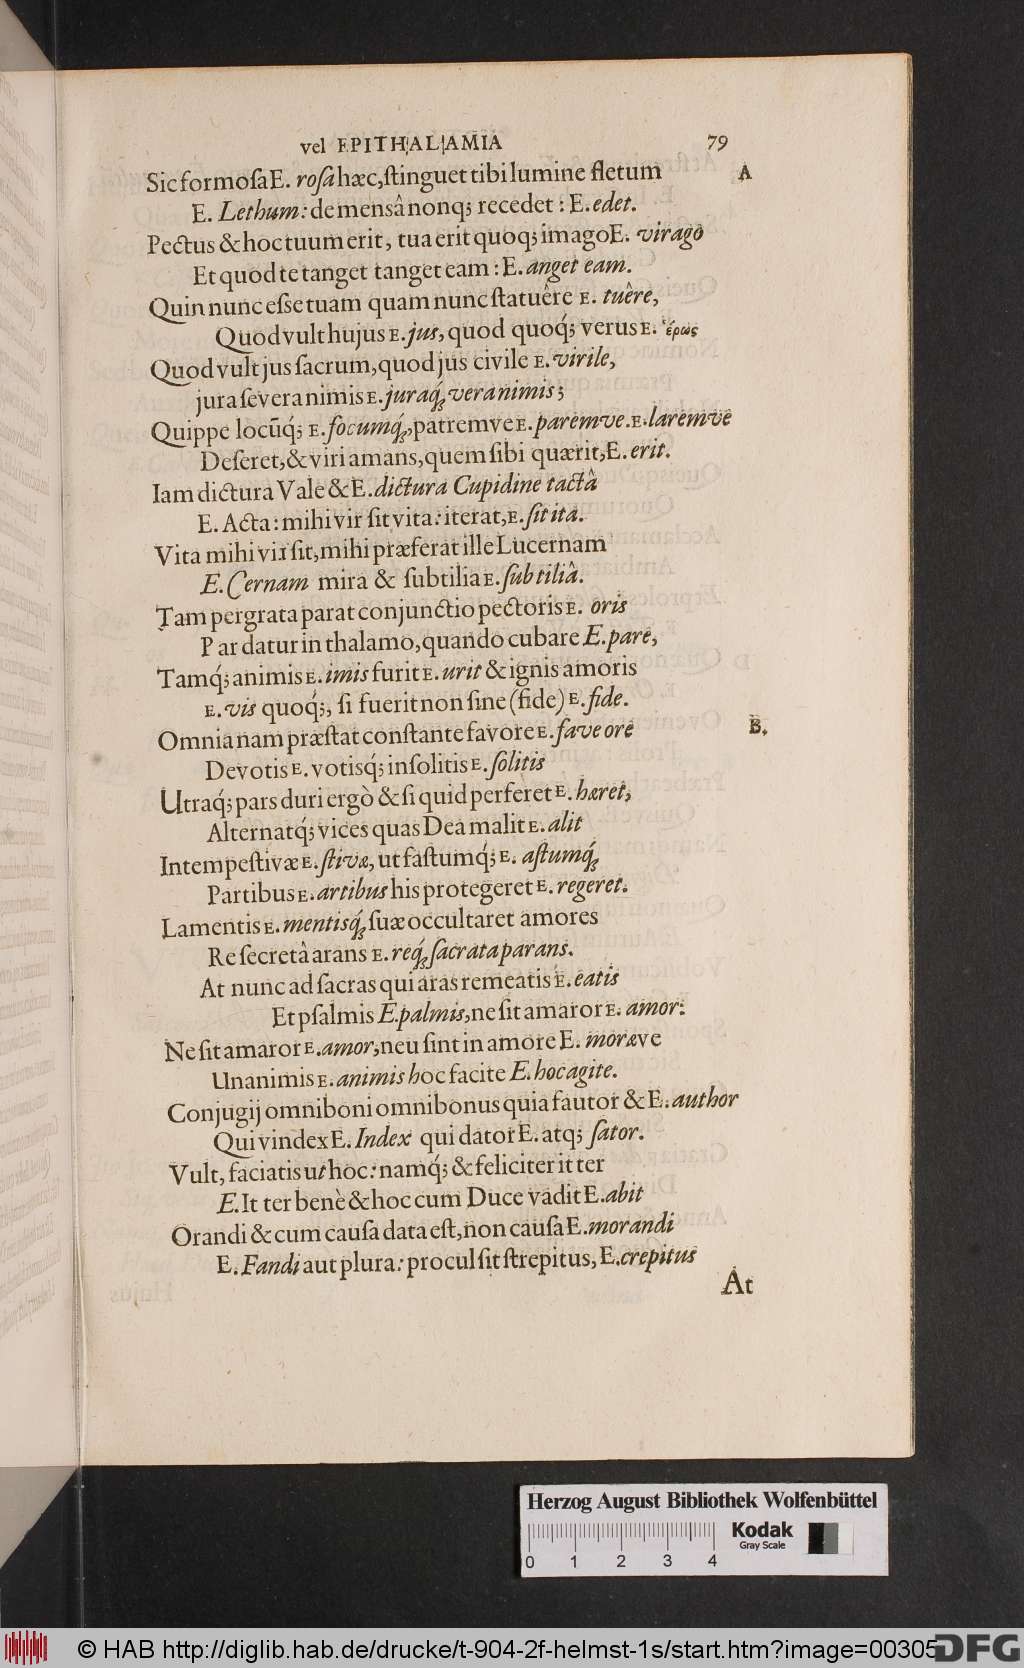 vel EPITHALAMIA 79
Sic formoſa E. roſa hæc, ſtinguet tibi lumine fletum A
E. Lethum: de mensâ nonq; recedet: E. edet.
Pectus & hoc tuum erit, tua erit quoq; imago E. virago
Et quod te tanget tanget eam: E. anget eam.
Quin nunc eſse tuam quam nunc ſtatuêre E. tuêre,
Quod vult hujus E. jus, quod quoq́; verus E. ἔρως
Quod vult jus ſacrum, quod jus civile E. virile,
jura ſevera nimis E. juraq́; vera nimis;
Quippe locũq́; E. focumq́;, patremve E. paremve. E. laremve
Deſeret, & viri amans, quem ſibi quærit, E. erit.
Iam dictura Vale & E. dictura Cupidine tactâ
E. Acta: mihi vir ſit vita: iterat, E. ſit ita.
Vita mihi vir ſit, mihi præferat ille Lucernam
E. Cernam mira & ſubtilia E. ſub tiliâ.
Tam pergrata parat conjunctio pectoris E. oris
Par datur in thalamo, quando cubare E. pare,
Tamq́; animis E. imis furit E. urit & ignis amoris
E. vis quoq́;, ſi fuerit non ſine (fide) E. fide.
Omnia nam præſtat conſtante favore E. fave ore B.
Devotis E. votisq́; inſolitis E. ſolitis
Utraq́; pars duri ergò & ſi quid perferet E. hæret,
Alternatq́; vices quas Dea malit E. alit
Intempeſtivæ E. ſtivæ, ut faſtumq́; E. aſtumq́;
Partibus E. artibus his protegeret E. regeret.
Lamentis E. mentisq́; ſuæ occultaret amores
Re ſecretâ arans E. req́; ſacrata parans.
At nunc ad ſacras qui aras remeatis E. eatis
Et pſalmis E. palmis, ne ſit amaror E. amor:
Ne ſit amaror E. amor, neu ſint in amore E. moræve
Unanimis E. animis hoc facite E. hoc agite.
Conjugij omniboni omnibonus quia fautor & E. author
Qui vindex E. Index qui dator E. atq; ſator.
Vult, faciatis ut hoc: namq́; & feliciter it ter
E. It ter benè & hoc cum Duce vadit E. abit
Orandi & cum cauſa data eſt, non cauſa E. morandi
E. Fandi aut plura: procul ſit ſtrepitus, E. crepitus
At
Herzog August Bibliothek Wolfenbüttel
Kodak
Gray Scale
0 1 2 3 4
© HAB http://diglib.hab.de/drucke/t-904-2f-helmst-1s/start.htm?image=00305
DFG